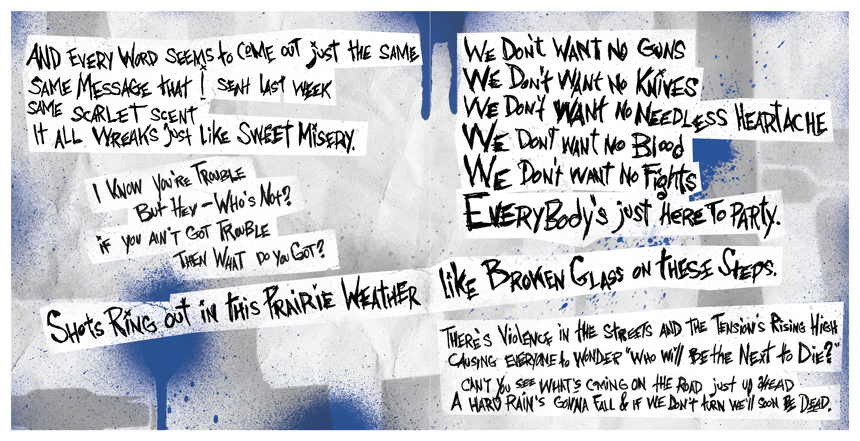 AND EVERY WORD SEEMS to COME OUT just THE SAME
SAME MESSAGE that I SENT LAST WEEK
SAME SCARLET SCENT
IT ALL WREAKS just LIKE SWEET MISERY.
I KNOW YOU'RE TROUBLE
BUT HEY - WHO'S NOT?
if YOU AIN'T GOT TROUBLE
THEN WHAT DO YOU GOT?
SHOTS RING OUT IN THIS PRAIRIE WEATHER
WE DON'T WANT NO GUNS
WE DON'T WANT NO KNIVES
WE DON'T WANT NO NEEDLESS HEARTACHE
WE DON'T WANT NO BLOOD
WE DON'T WANT NO FIGHTS
EVERYBODY'S just HERE TO PARTY.
like BROKEN GLASS ON THESE STEPS.
THERE'S VIOLENCE IN THE STREETS AND THE TENSION'S RISING HIGH
CAUSING EVERYONE to WONDER "WHO WILL BE THE NEXT to DIE?"
CAN'T YOU SEE WHAT'S COMING ON THE ROAD just UP AHEAD
A HARD RAIN'S GONNA FALL & IF WE DON'T TURN WE'LL SOON BE DEAD.